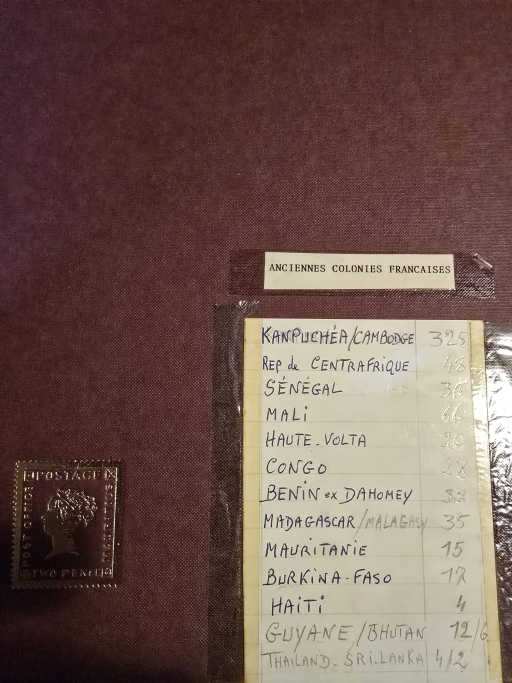 ANCIENNES COLONIES FRANCAISES
KANPUCHÉA/CAMBODGE 325
REP de CENTRAFRIQUE 48
SÉNÉGAL 36
MALI 66
HAUTE-VOLTA 20
CONGO 28
BENIN ex DAHOMEY 38
MADAGASCAR/MALAGASY 35
MAURITANIE 15
BURKINA-FASO 17
HAITI 4
GUYANE/BHUTAN 12/6
THAILAND-SRI-LANKA 4/2
POSTAGE
POST OFFICE
MAURITIUS
TWO PENCE